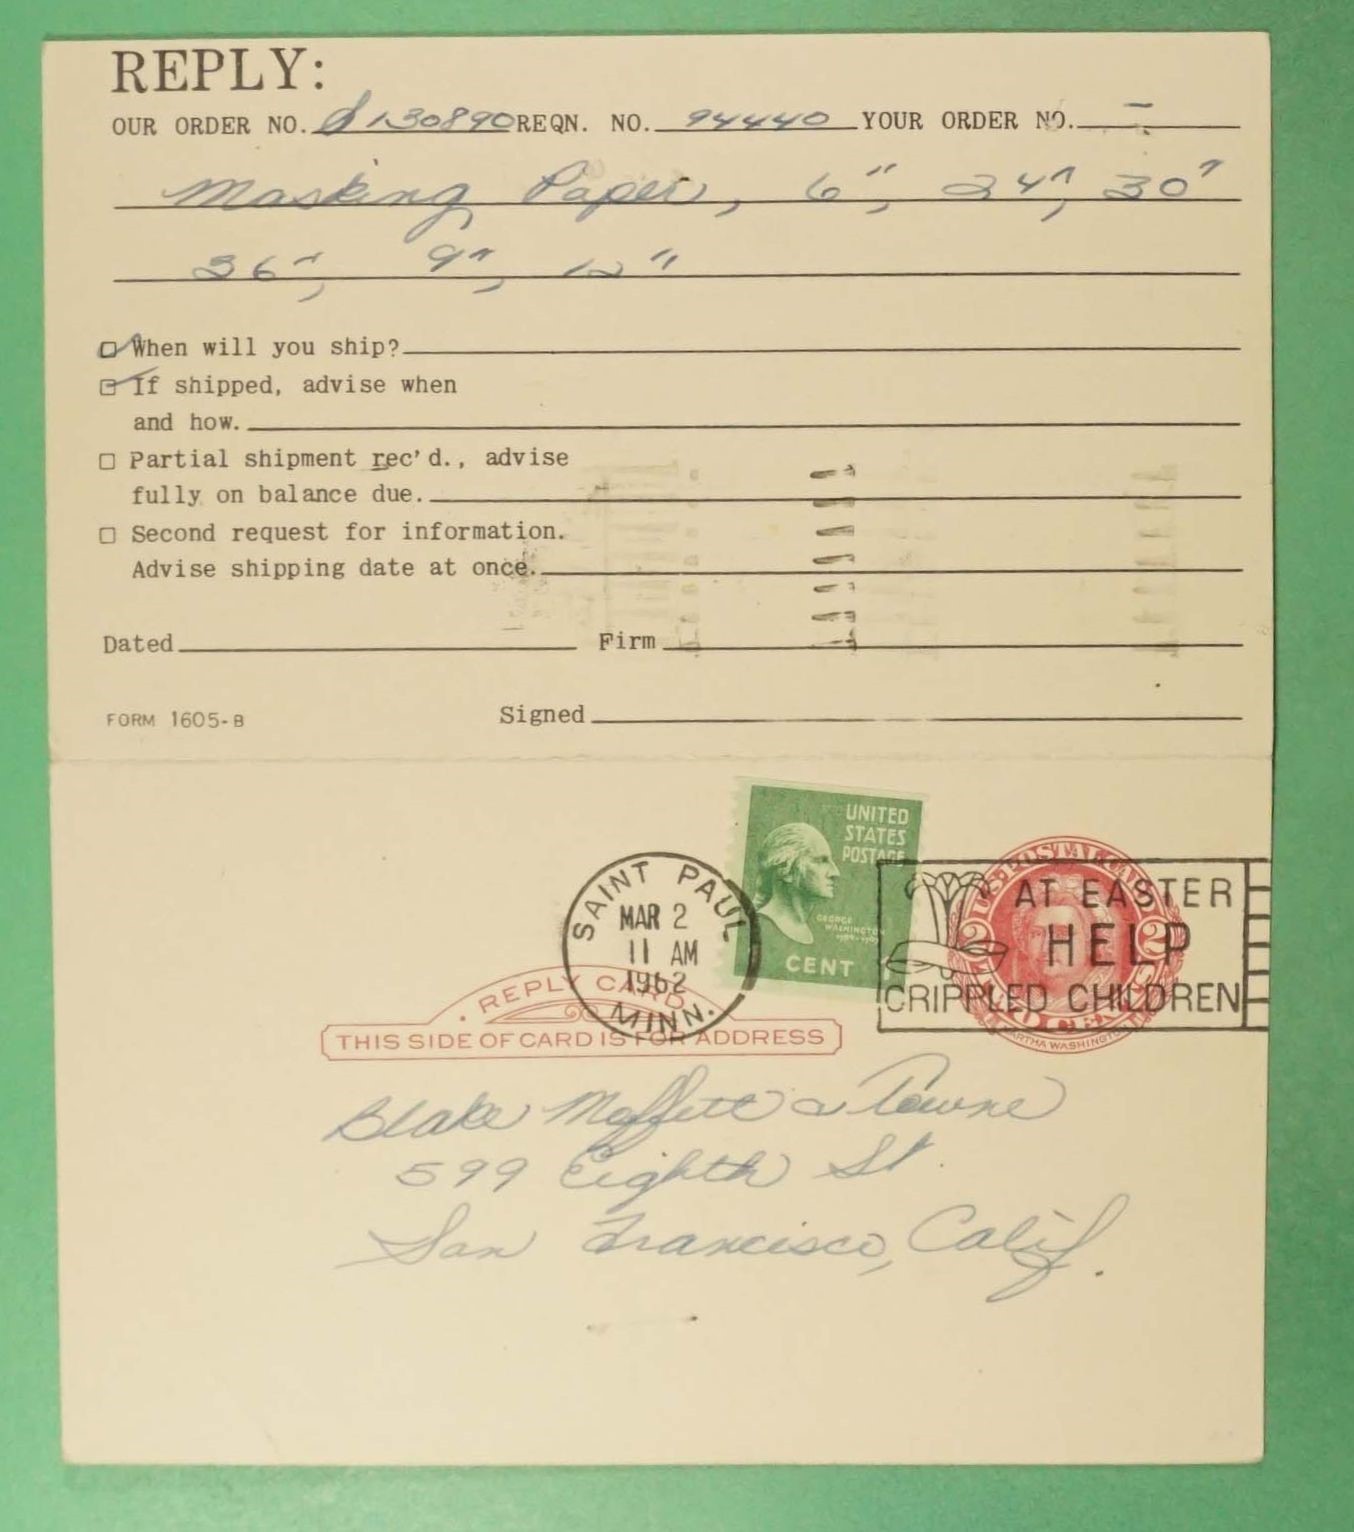 REPLY:
OUR ORDER NO. 130890 REQN. NO. 94440 YOUR ORDER NO. -
Masking Paper, 6", 24", 30"
36", 9", 12"
When will you ship?
If shipped, advise when
and how.
Partial shipment rec'd., advise
fully on balance due.
Second request for information.
Advise shipping date at once.
Dated Firm
FORM 1605-B Signed
UNITED
STATES
POSTAGE
GEORGE
WASHINGTON
1 CENT
SAINT PAUL
MAR 2
11 AM
1962
MINN.
U.S. POSTAL CARD
2 2
MARTHA WASHINGTON
AT EASTER
HELP
CRIPPLED CHILDREN
REPLY CARD
THIS SIDE OF CARD IS FOR ADDRESS
Blake Moffitt & Towne
599 Eighth St.
San Francisco, Calif.